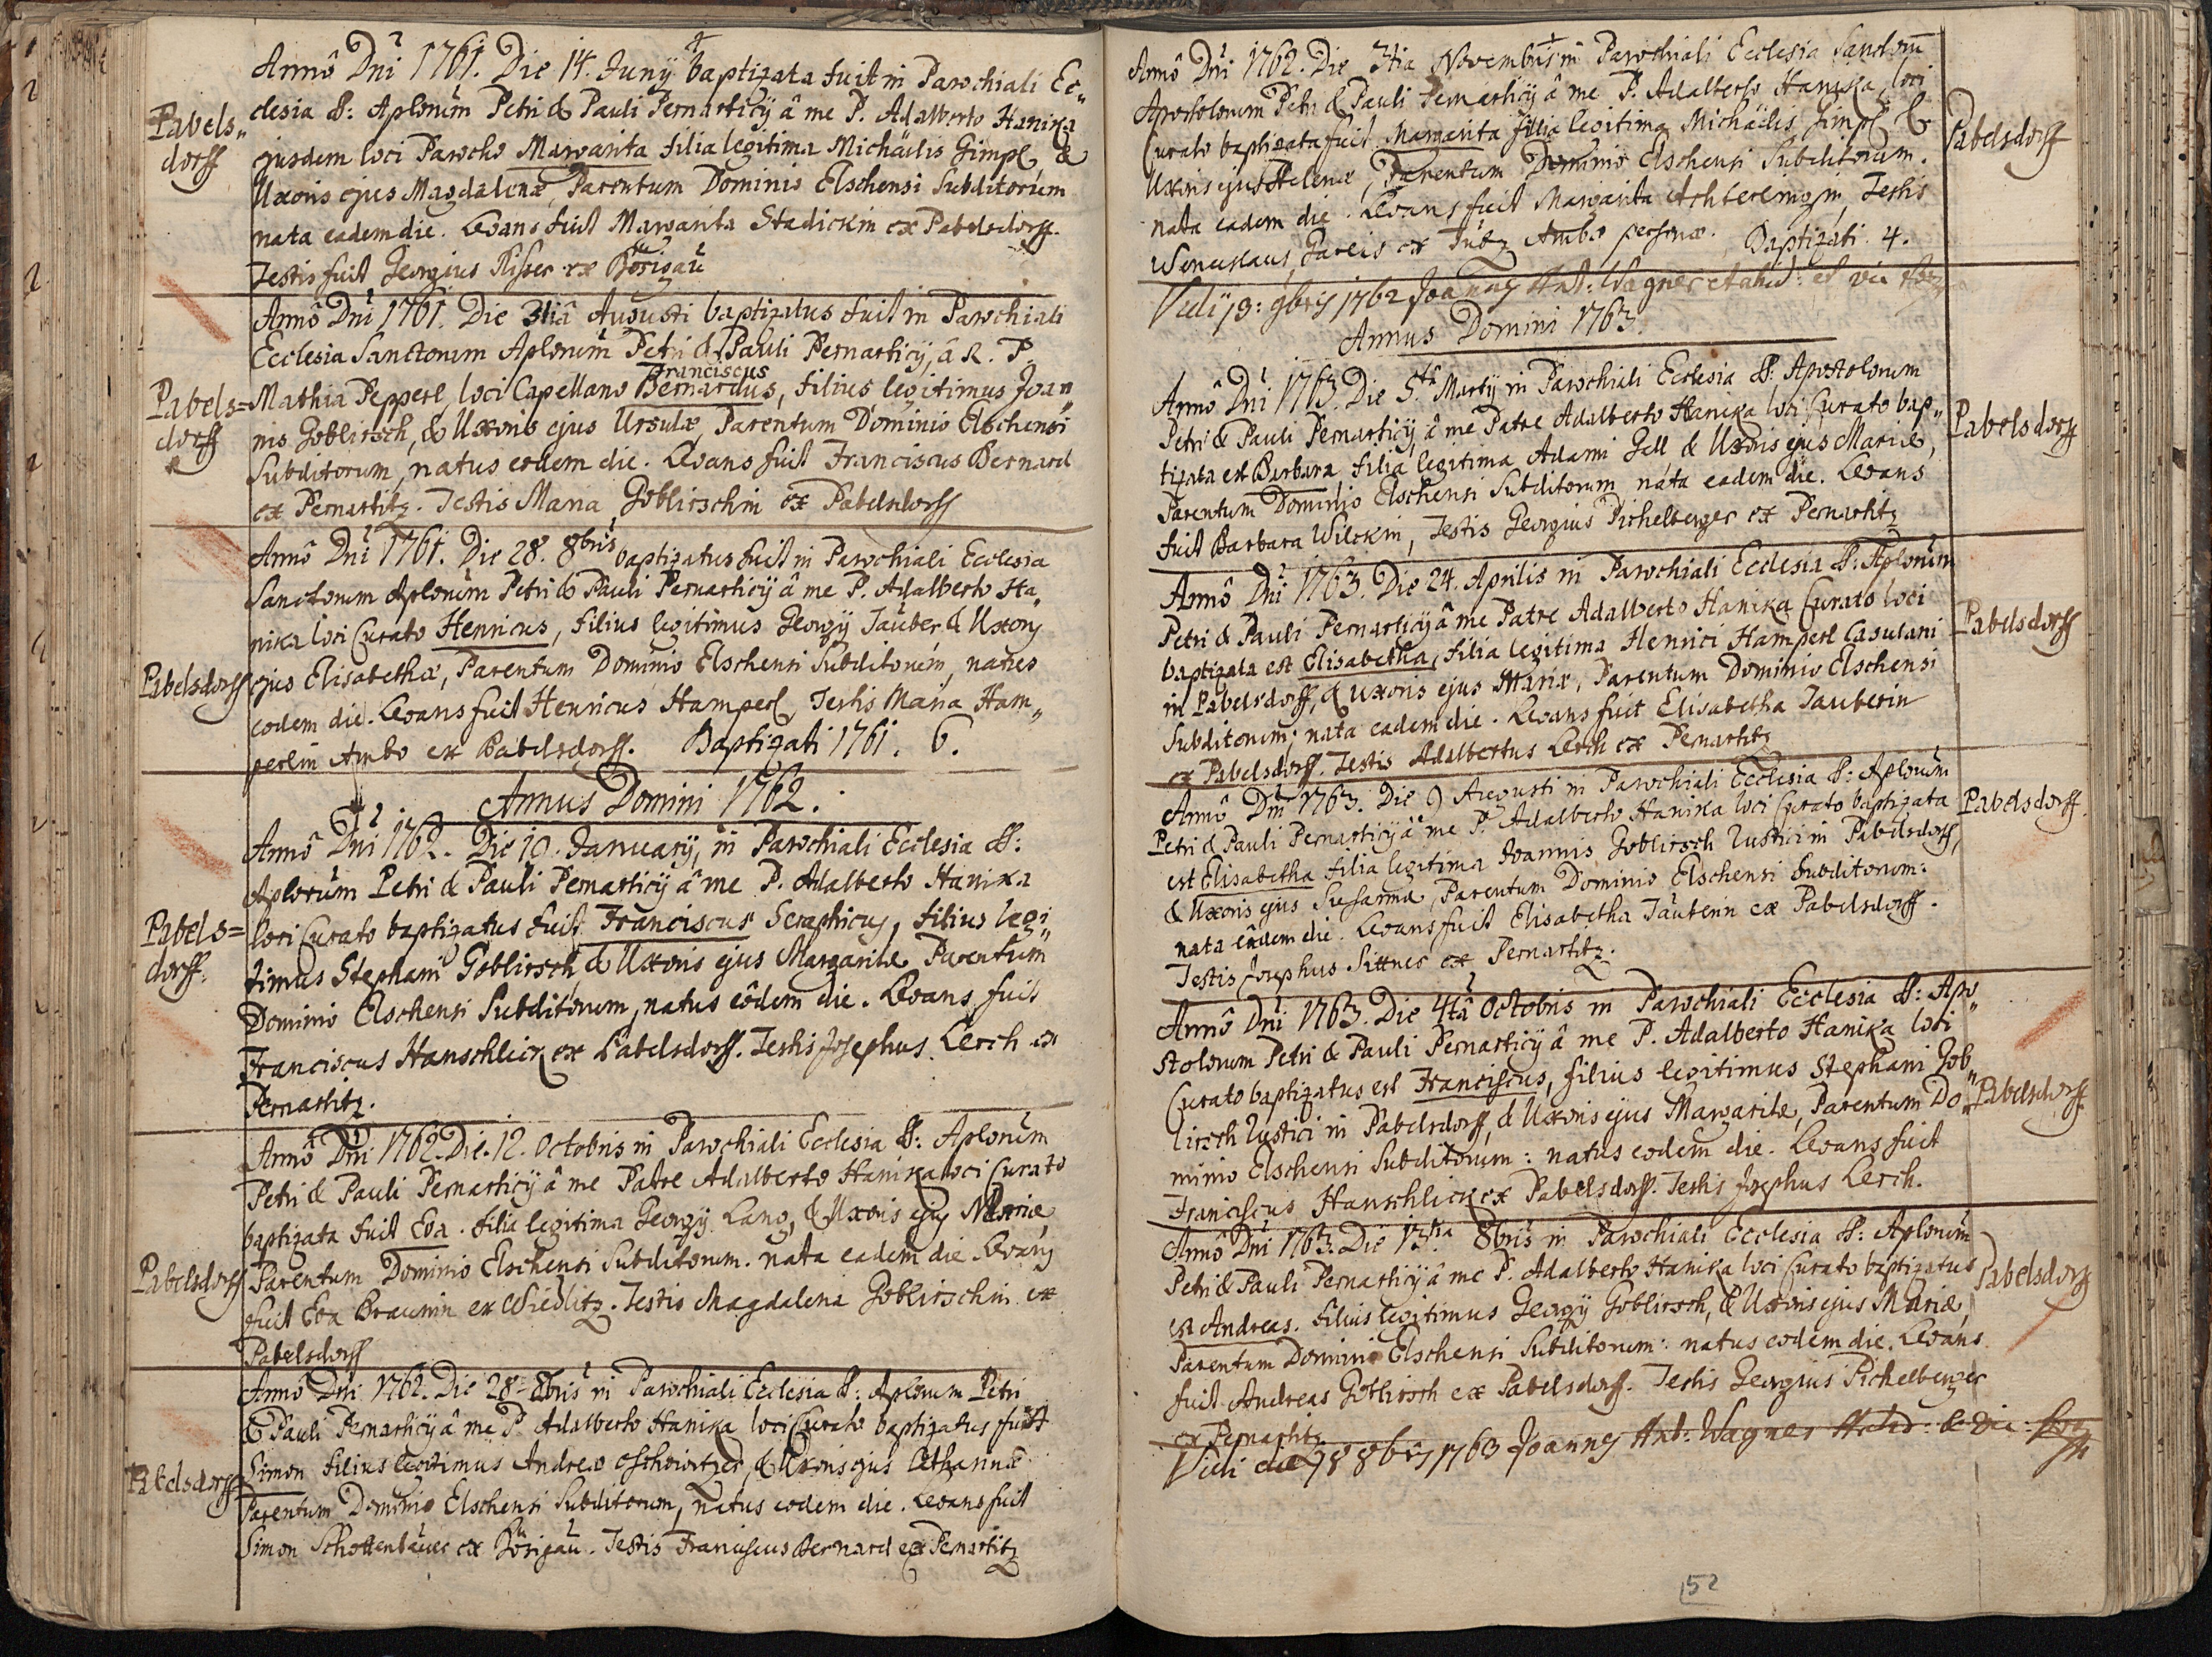 Annô Dni 1761. Die 14. Junÿ baptizata fuit in Parochiali Ec„
Pabels„
dorff
clesia SS: Aplorum Petri & Pauli Pernarticÿ â me P. Adalberto Hanika
ejusdem loci Parocho Margarita filia legitima Michäelis Gimpl &
Uxoris ejus Magdalenæ, Parentum Dominio Elschensi Subditorum
nata eadem die. Levans fuit Margarita Stadickin ex Pabelsdorff.
Testis fuit Georgius Risser ex Börigau
Annô Dni 1761. Die 31iâ Augusti baptizatus fuit in Parochiali
Ecclesia Sanctorum Aplorum Petri & Pauli Pernarticÿ, â R. P.
Franciscus
Pabels=
dorff
Mathia Pepperl loci Capellano Bernardus, filius legitimus Joan„
nis Goblirsch, & Uxoris ejus Ursulæ, Parentum Dominio Elschensi
Subditorum, natus eodem die. Levans fuit Franciscus Bernard
ex Pernartitz. Testis Maria Goblirschin ex Pabelsdorff
Annô Dni 1761. Die 28. 8bris baptizatus fuit in Parochiali Ecclesia
Sanctorum Aplorum Petri & Pauli Pernarticÿ â me P. Adalberto Ha„
nika loci Curato Henricus, filius legitimus Georgÿ Tauber & Uxoris
Pabelsdorff
ejus Elisabethæ, Parentum Dominio Elschensi Subditorum, natus
eodem die. Levans fuit Henricus Hamperl, Testis Maria Ham„
perlin Ambo ex Pabelsdorff. Baptizati 1761. 6.
Annus Domini 1762.
Annô Dni 1762. Die 10. Januarÿ, in Parochiali Ecclesia SS:
Aplorum Petri & Pauli Pernarticÿ â me P. Adalberto Hanika
Pabels=
dorff.
loci Curato baptizatus fuit Franciscus Seraphicus, filius legi„
timus Stephani Goblirsch, & Uxoris ejus Margaritæ Parentum
Dominio Elschensi Subditorum, natus eôdem die. Levans fuit
Franciscus Hanschlick ex Pabelsdorff. Testis Josephus Lerch ex
Pernartitz.
Annô Dni 1762. Die. 12. Octobris in Parochiali Ecclesia SS: Aplorum
Petri & Pauli Pernarticÿ â me Patre Adalberto Hanika loci Curato
baptizata fuit Eva. filia legitima Georgÿ Lang, & Uxoris ejus Mariæ,
Pabelsdorff
Parentum Dominio Elschensi Subditorum. nata eadem die Levans
fuit Eva Braunin ex Wiedlitz. Testis Magdalena Goblirschin ex
Pabelsdorff
Annô Dni 1762. Die 28 8bris in Parochiali Ecclesia SS: Aplorum Petri
& Pauli Pernarticÿ â me P. Adalberto Hanika loci Curato baptizatus fuit
Pabelsdorff
Simon filius legitimus Andreæ & Uxoris ejus
Parentum Dominio Elschensi Subditorum, natus eodem die. Levans fuit
Simon Schottenbauer ex Börigau. Testis Franciscus Bernard ex Pernartitz
Annô Dni 1762. Die 7tia Novembris in Parochiali Ecclesia Sanctorum
Apostolorum Petri & Pauli Pernarticÿ â me P. Adalberto Hanika, loci
Pabelsdorff
Curato baptizata fuit Margarita filia legitima Michäelis Gimpl &
Uxoris ejus Helenæ, Parentum Dominio Elschensi Subditorum.
nata eadem die. Levans fuit Margarita Achterlingin, Testis
Wenceslaus Gareis ex Jutz Ambæ personæ. Baptizati. 4.
Vidi 19: 9bris 1762 Joannes Ant: Wagner
Annus Domini 1763.
Annô Dni 1763. Die 5.tâ Martÿ in Parochiali Ecclesia SS: Apostolorum
Petri & Pauli Pernarticÿ, â me Patre Adalberto Hanika loci Curato bap„
Pabelsdorff
tizata est Barbara, filia legitima Adami Gell & Uxoris ejus Mariæ,
Parentum Dominio Elschensi Subditorum, nata eadem die. Levans
fuit Barbara Wilckin, Testis Georgius Pichelberger ex Pernartitz
Annô Dni 1763. Die 24. Aprilis in Parochiali Ecclesia SS: Aplorum
Petri & Pauli Pernarticÿ â me Patre Adalberto Hanika Curato loci
Pabelsdorff
baptizata est Elisabetha, filia legitima Henrici Hamperl Casulani
in Pabelsdorff, & Uxoris ejus Mariæ, Parentum Dominio Elschensi
Subditorum; nata eadem die. Levans fuit Elisabetha Tauberin
ex Pabelsdorff. Testis Adalbertus Lerch ex Pernartitz
Annô Dni 1763. Die 9 Augusti in Parochiali Ecclesia SS: Aplorum
Pabelsdorff.
Petri & Pauli Pernarticÿ â me P. Adalberto Hanika loci Curato baptizata
est Elisabetha filia legitima Joannis Goblirsch Rustici in Pabelsdorff,
& Uxoris ejus Susannæ, Parentum Dominio Elschensi Subditorum:
nata eâdem die. Levans fuit Elisabetha Tauberin ex Pabelsdorff.
Testis Josephus Sittner ex Pernartitz.
Annô Dni 1763. Die 4tâ Octobris in Parochiali Ecclesia SS: Apo„
stolorum Petri & Pauli Pernarticÿ â me P. Adalberto Hanika loci
Curato baptizatus est Franciscus, filius legitimus Stephani Gob„
Pabelsdorff.
lirsch Rustici in Pabelsdorff, & Uxoris ejus Margaritæ, Parentum Do„
minio Elschensi Subditorum: natus eodem die. Levans fuit
Franciscus Hanschlick ex Pabelsdorff. Testis Josephus Lerch.
Annô Dni 1763. Die 13tia 8bris in Parochiali Ecclesia SS: Aplorum
Petri & Pauli Pernarticÿ â me P. Adalberto Hanika loci Curato baptizatus
Pabelsdorff
est Andreas. filius legitimus Georgÿ Goblirsch, & Uxoris ejus Mariæ,
Parentum Dominio Elschensi Subditorum: natus eodem die. Levans
fuit Andreas Goblirsch ex Pabelsdorff. Testis Georgius Pichelberger
ex Pernartitz
Vidi 8bris 1763 Joannes Ant: Wagner
152